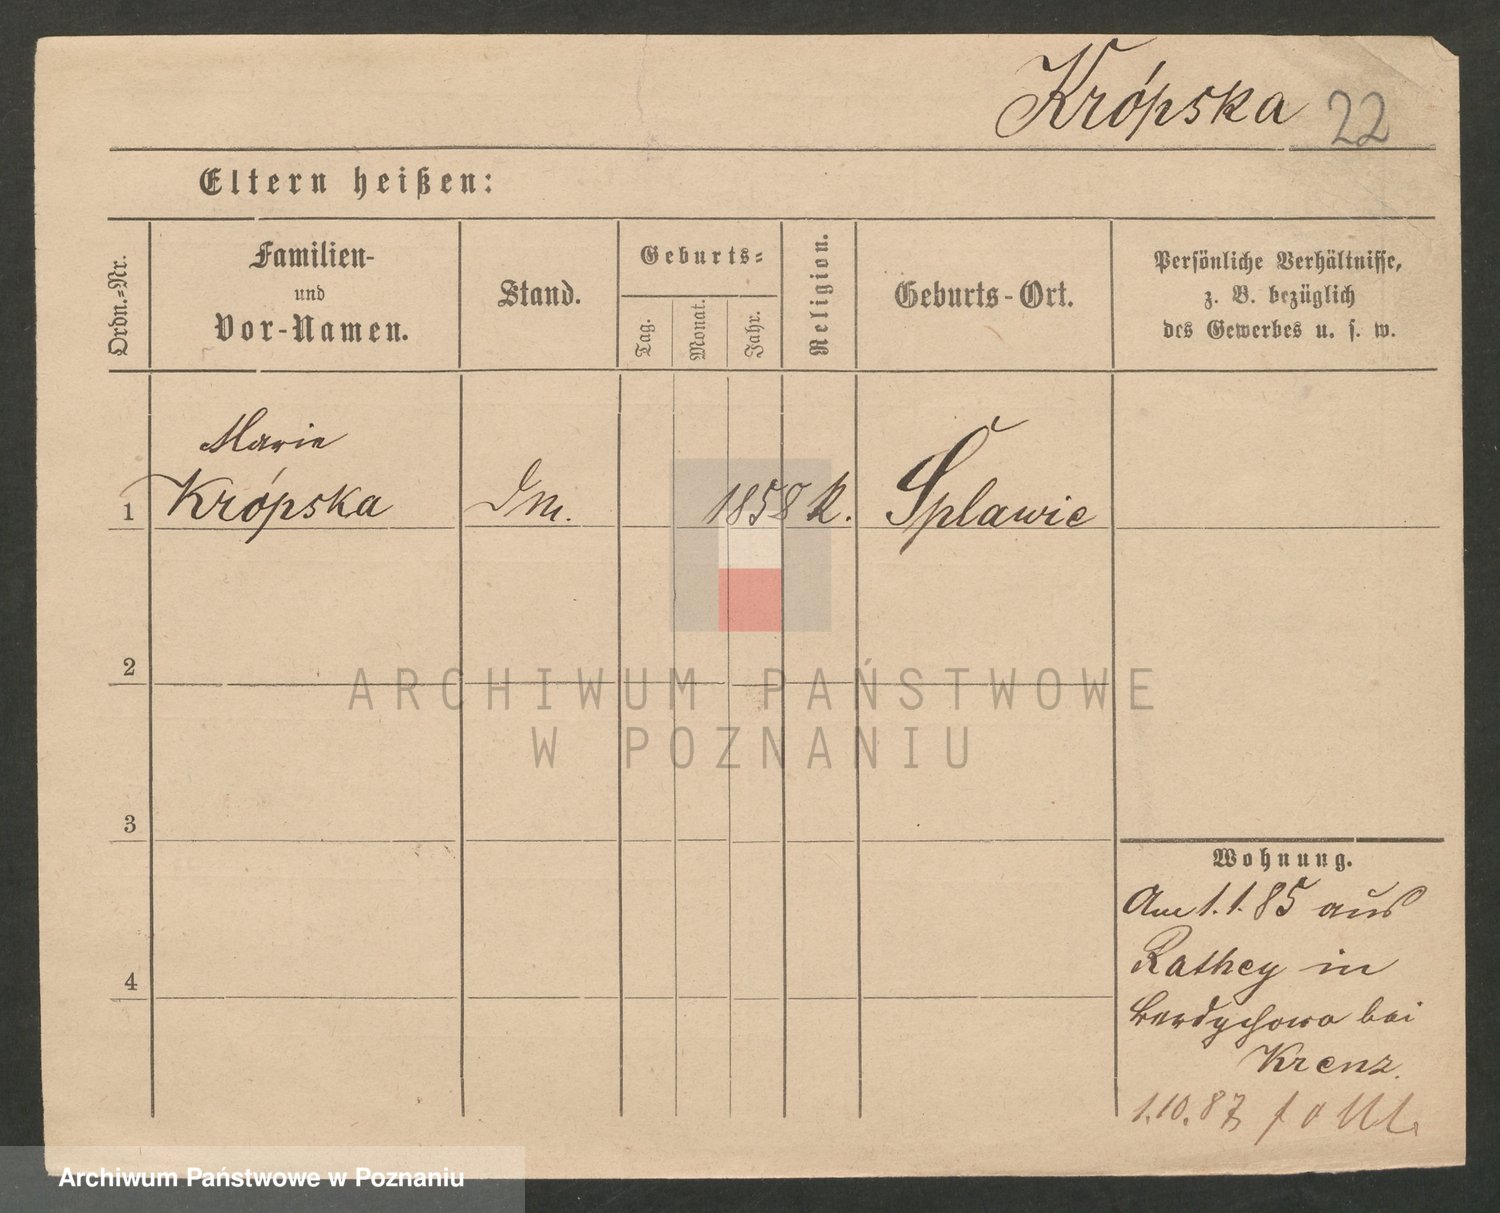 Krópska 22
Eltern heißen:
Ordn.=Nr.
Familien-
und
Vor-Namen.
Stand.
Geburts=
Tag.
Monat.
Jahr.
Religion.
Geburts-Ort.
Persönliche Verhältnisse,
z. B. bezüglich
des Gewerbes u. s. w.
Marie
1 Krópska Dm. 1858 K. Splawie
2
ARCHIWUM PAŃSTWOWE
W POZNANIU
3
Wohnung.
Am 1.1.85 aus
Rathey in
Berdychowo bei
Krenz.
4
1.10.87
Archiwum Państwowe w Poznaniu